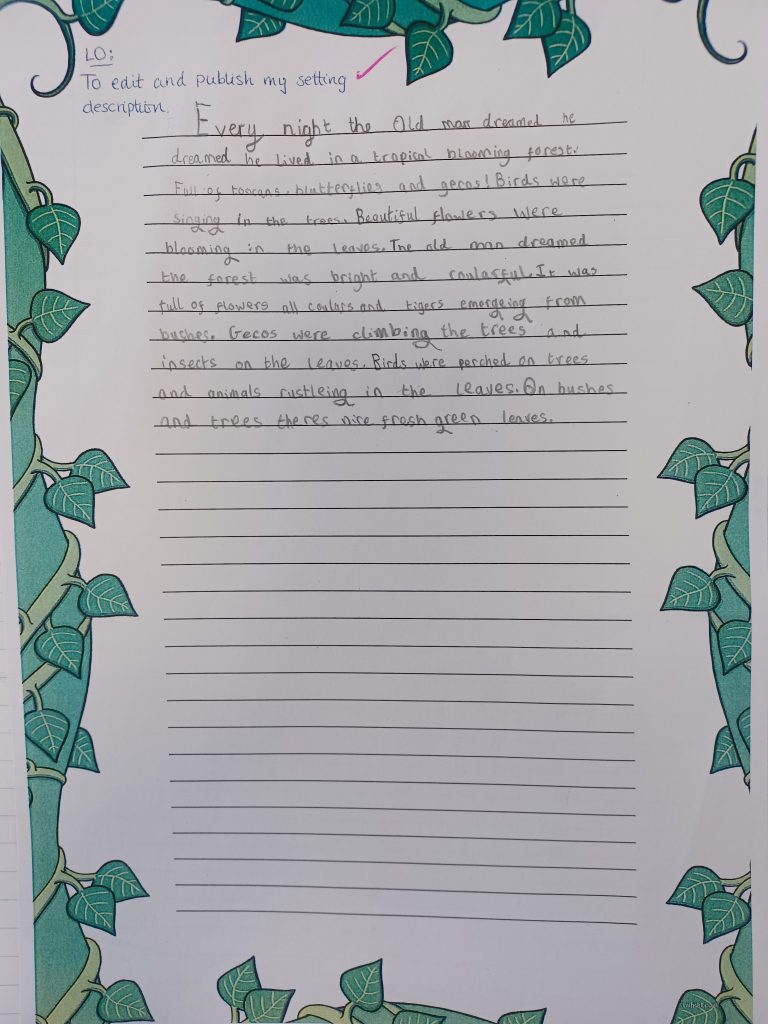 LO:
To edit and publish my setting
description.
Every night the Old man dreamed he
dreamed he lived in a tropical blooming forest.
Full of toocans, blutterflies and gecos! Birds were
singing in the trees. Beautiful flowers were
blooming in the leaves. The old man dreamed
the forest was bright and coulorful. It was
full of flowers all coulors and tigers emergeing from
bushes. Gecos were climbing the trees and
insects on the leaves. Birds were perched on trees
and animals rustleing in the leaves. On bushes
and trees theres nice fresh green leaves.